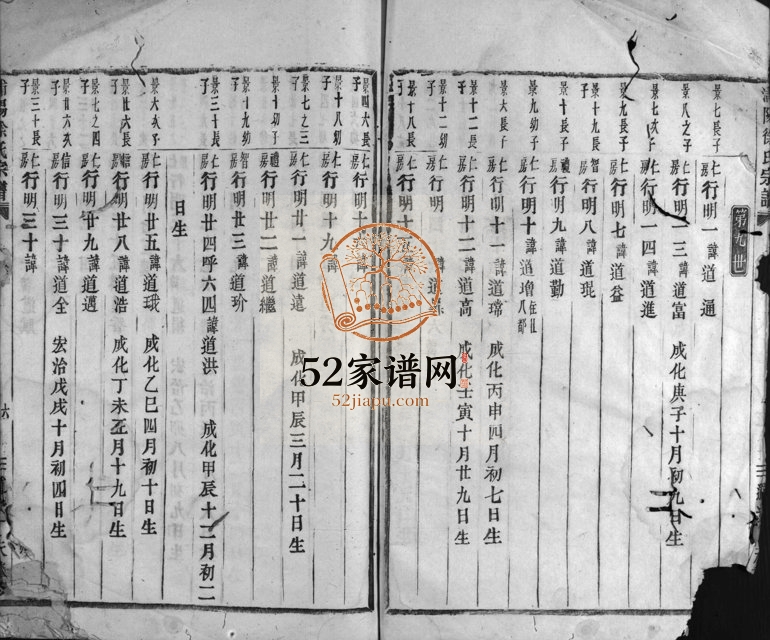 浦陽徐氏宗譜
第九世
景七長子 仁房 行明一 諱道通
景八之子 仁房 行明一三 諱道富 成化庚子十月初九日生
景七次子 仁房 行明一四 諱道進
景九長子 仁房 行明七 諱道益
景十九長子 智房 行明八 諱道琨
景十長子 禮房 行明九 諱道勤
景九幼子 仁房 行明十 諱道增 住廿八都
景六長子 仁房 行明十一 諱道瑺 成化丙申四月初七日生
景十二長子 仁房 行明十二 諱道高 成化壬寅十月廿九日生
景十二幼子 仁房 行明 諱道
景十八長子 仁房 行明十
景四六長子 仁房 行明十 諱
景十八幼子 仁房 行明十九 諱道
景七之三子 仁房 行明廿一 諱道遠 成化甲辰三月二十日生
景十幼子 禮房 行明廿二 諱道繼
景十九幼子 智房 行明廿三 諱道玠
景三十長子 仁房 行明廿四 呼六四 諱道洪 成化甲辰十二月初二
日生
景六次子 仁房 行明廿五 諱道珴 成化乙巳四月初十日生
景廿六長子 信房 行明廿八 諱道浩 成化丁未五月十九日生
景七之四子 仁房 行明廿九 諱道邁
景廿六次子 信房 行明三十 諱道全 宏治戊戌十月初四日生
景三十長子 仁房 行明三十 諱
浦陽徐氏宗譜
六
52家谱网
52jiapu.com